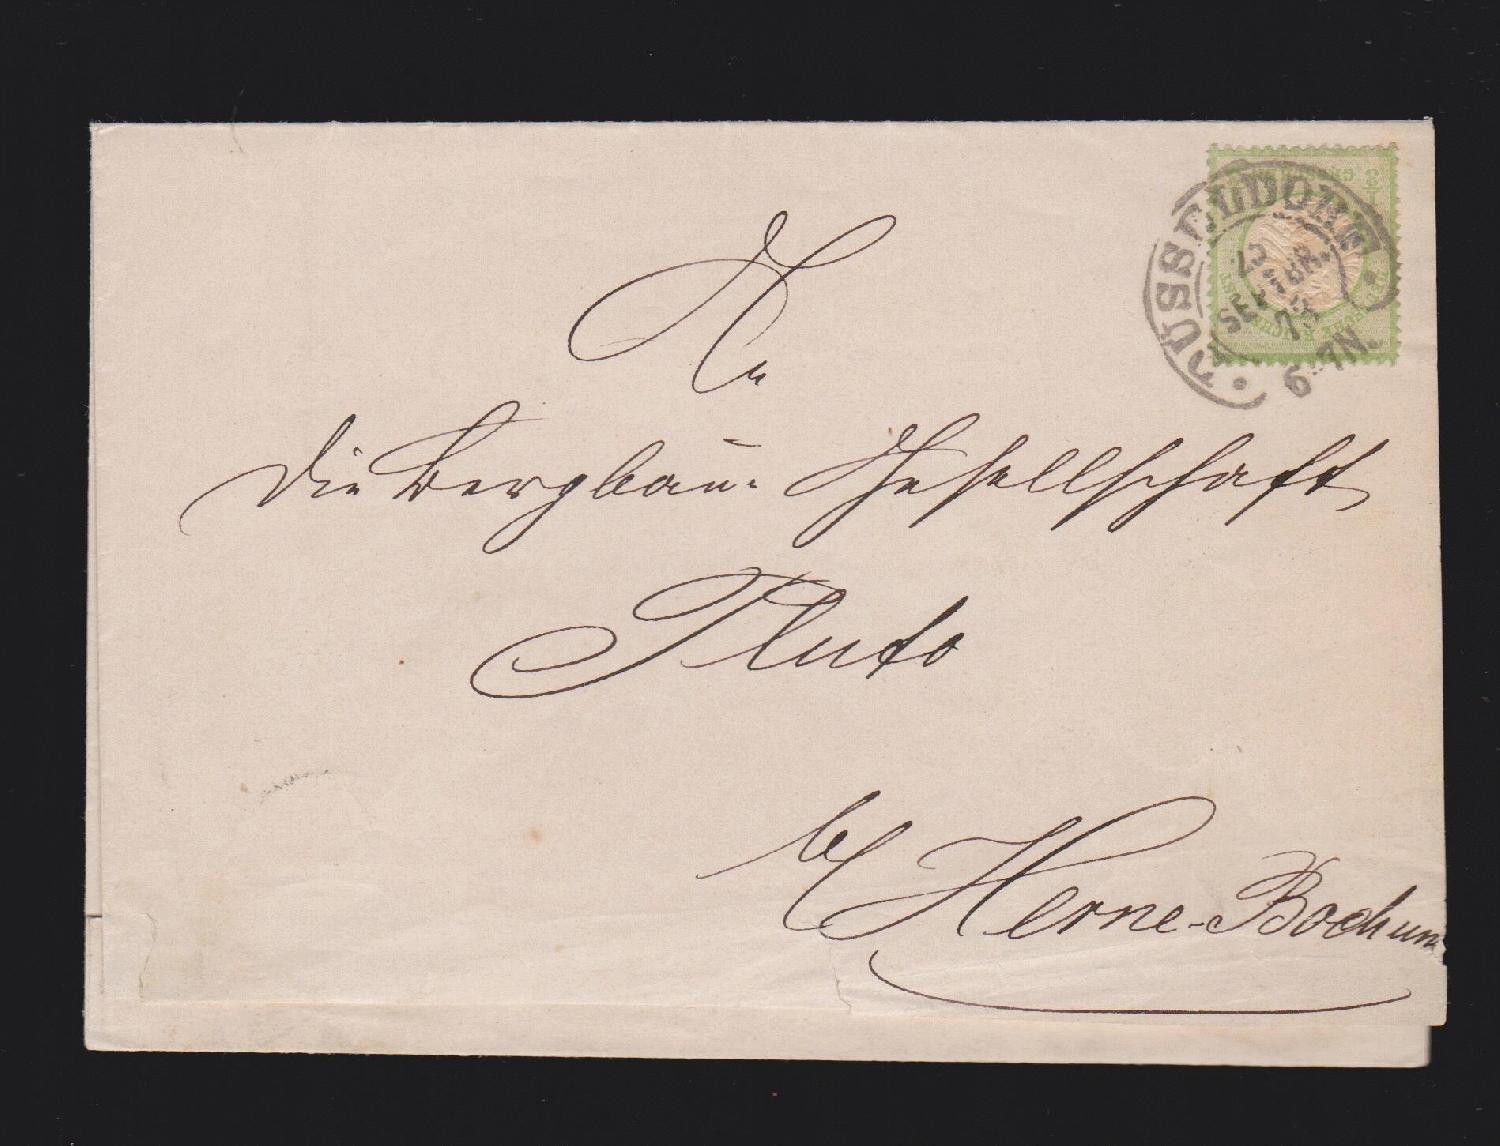 DÜSSELDORF
23
SEPTBR.
73
6-7N.
An
die Bergbau-Gesellschaft
Pluto
b/ Herne-Bochum